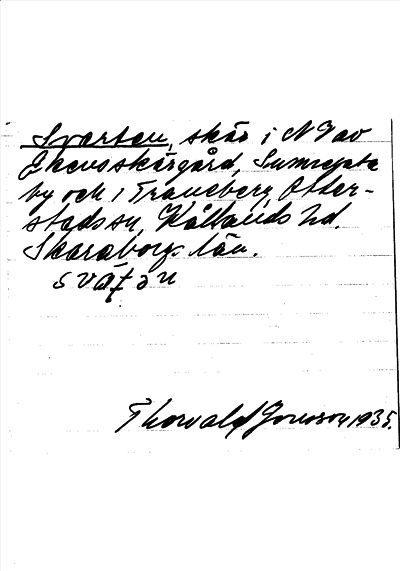 Svarten, skär i NV av
Ekens skärgård, Sunnersta
by och i Traneberg, Otter-
stads sn, Kållands hd.
Skaraborgs län.
svát̩ən
Thorvald Jonsson 1935.